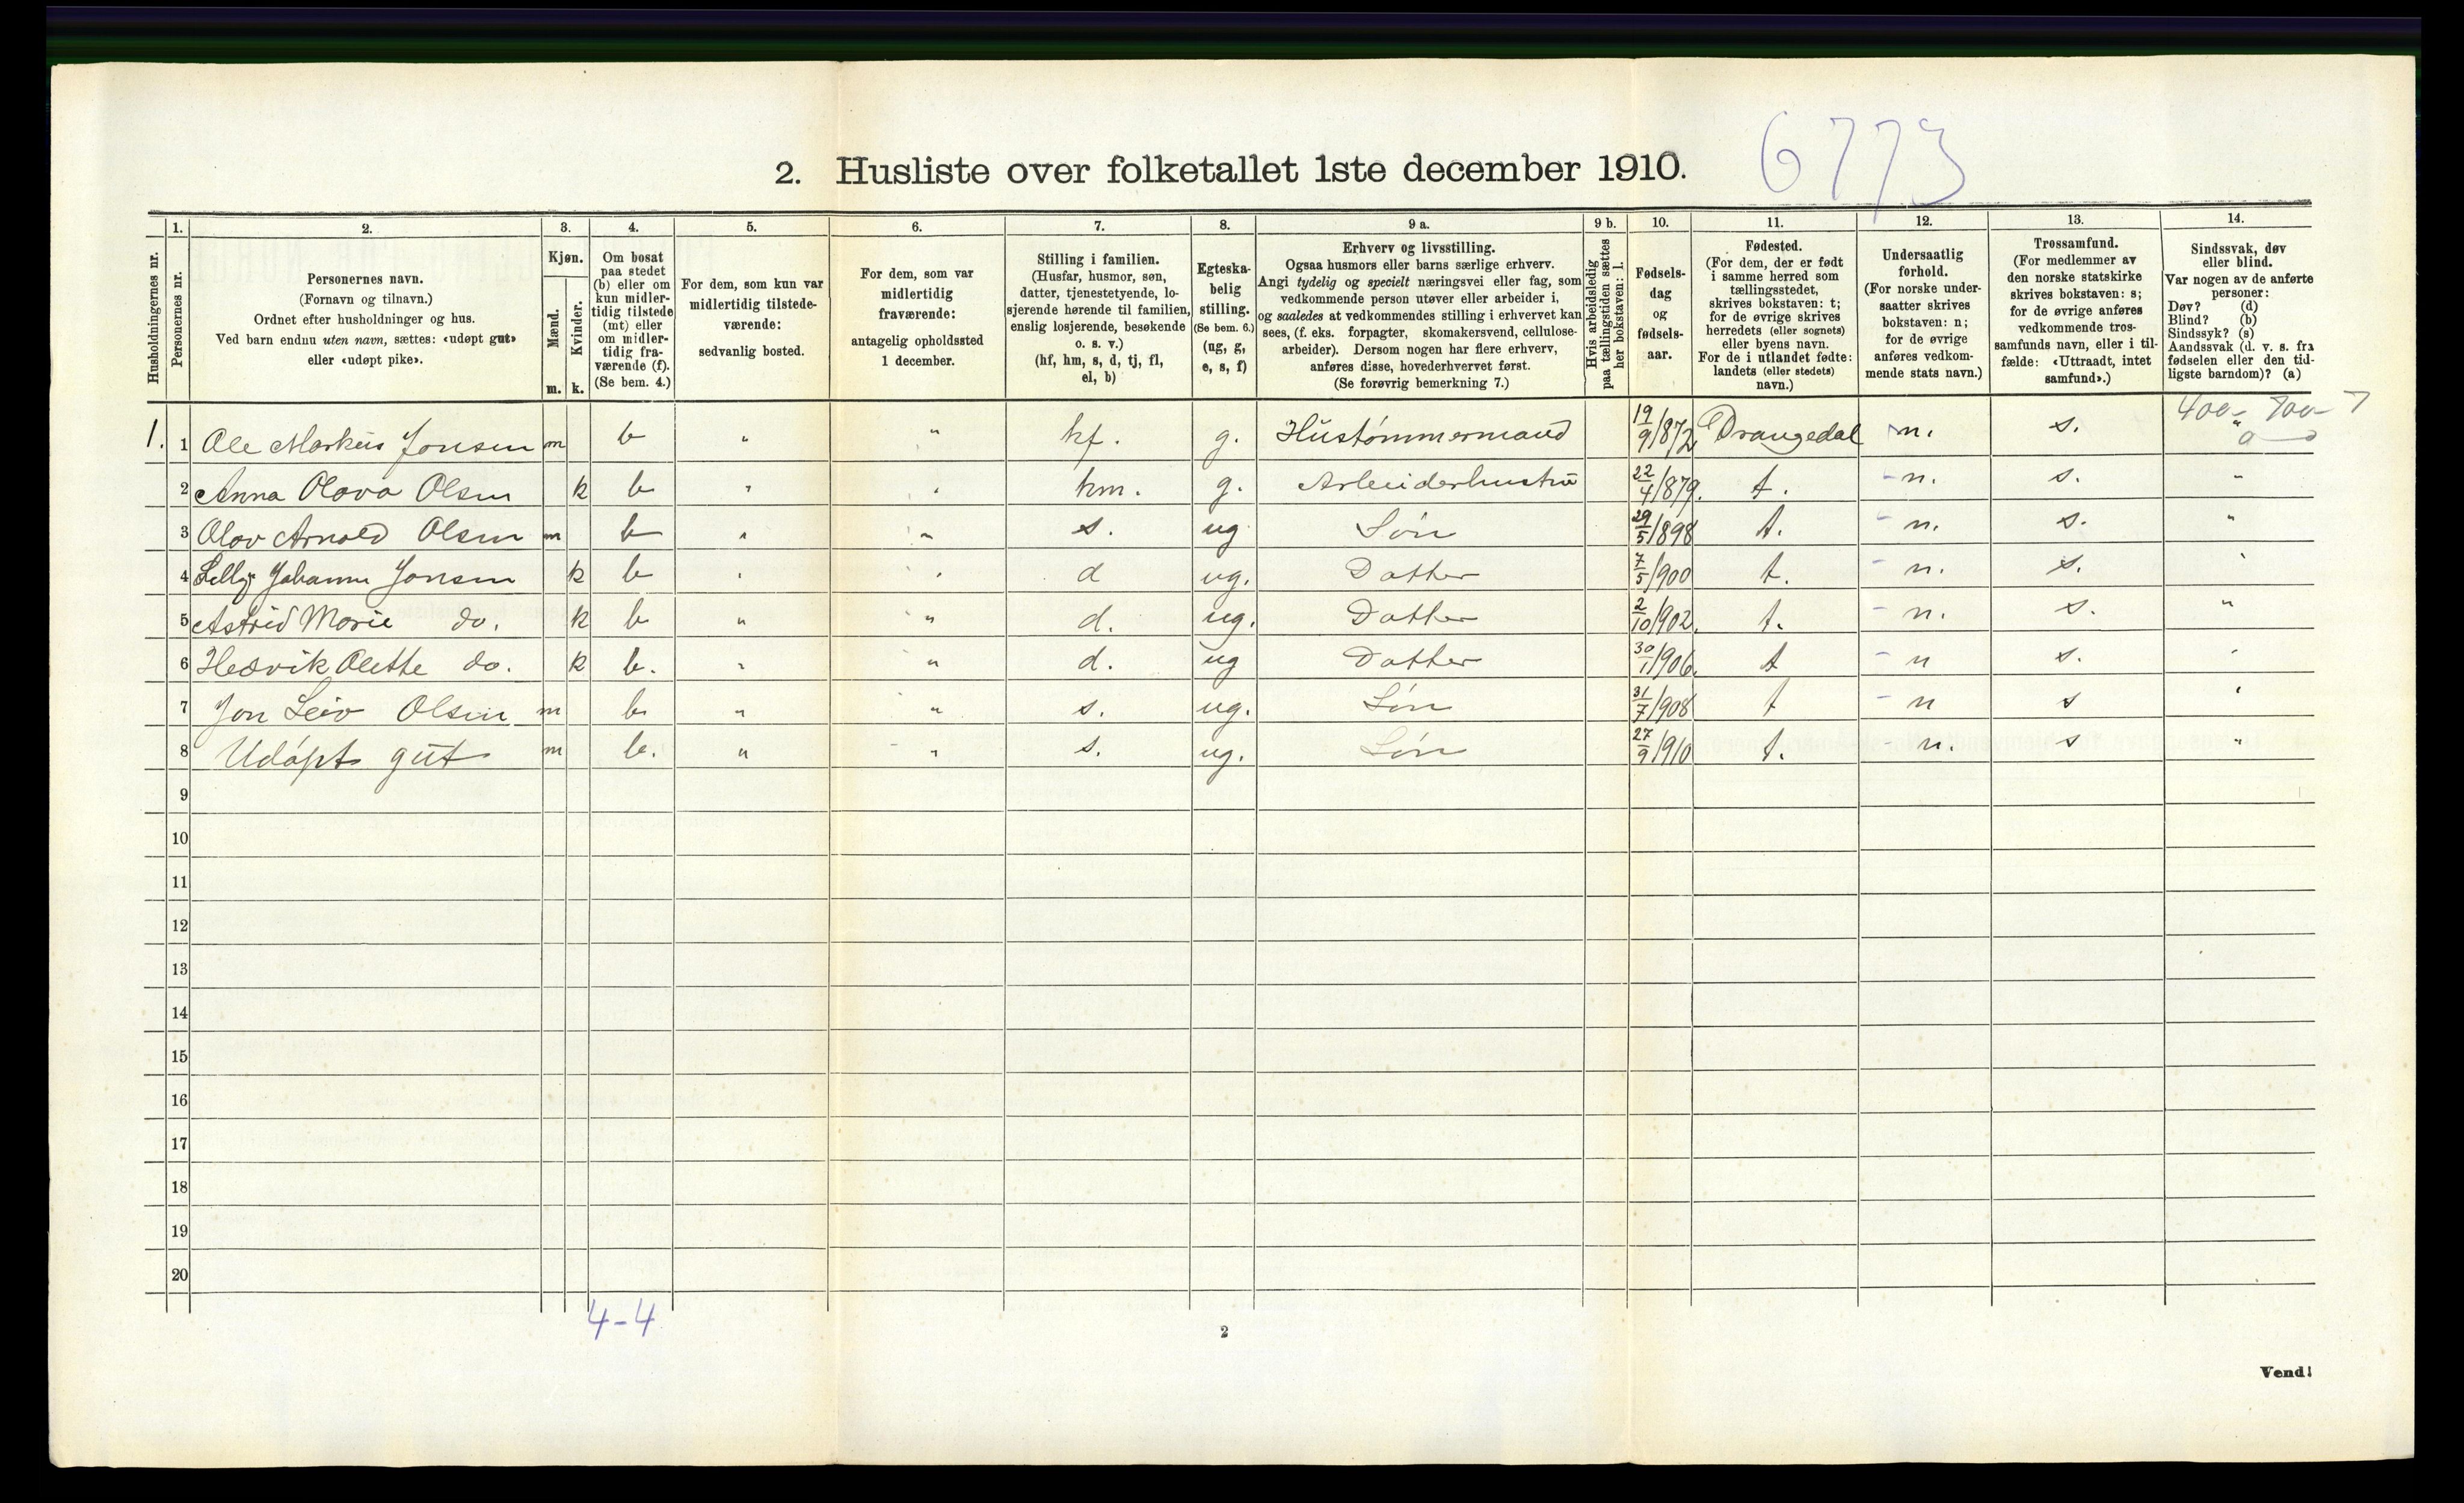 6773
2. Husliste over folketallet 1ste december 1910.
1. 2. 3. 4. 5. 6. 7. 8. 9 a. 9 b. 10. 11. 12. 13. 14.
Husholdningernes nr.
Personernes nr.
Personernes navn.
(Fornavn og tilnavn.)
Ordnet efter husholdninger og hus.
Ved barn endnu uten navn, sættes: «udøpt gut»
eller «udøpt pike».
Kjøn.
Mænd.
Kvinder.
m. k.
Om bosat
paa stedet
(b) eller om
kun midler-
tidig tilstede
(mt) eller
om midler-
tidig fra-
værende (f).
(Se bem. 4.)
For dem, som kun var
midlertidig tilstede-
værende:
sedvanlig bosted.
For dem, som var
midlertidig
fraværende:
antagelig opholdssted
1 december.
Stilling i familien.
(Husfar, husmor, søn,
datter, tjenestetyende, lo-
sjerende hørende til familien,
enslig losjerende, besøkende
o. s. v.)
(hf, hm, s, d, tj, fl,
el, b)
Egteska-
belig
stilling.
(Se bem. 6.)
(ug, g,
e, s, f)
Erhverv og livsstilling.
Ogsaa husmors eller barns særlige erhverv.
Angi tydelig og specielt næringsvei eller fag, som
vedkommende person utøver eller arbeider i,
og saaledes at vedkommendes stilling i erhvervet kan
sees, (f. eks. forpagter, skomakersvend, cellulose-
arbeider). Dersom nogen har flere erhverv,
anføres disse, hovederhvervet først.
(Se forøvrig bemerkning 7.)
Hvis arbeidsledig
paa tællingstiden sættes
her bokstaven: l.
Fødsels-
dag
og
fødsels-
aar.
Fødested.
(For dem, der er født
i samme herred som
tællingsstedet,
skrives bokstaven: t;
for de øvrige skrives
herredets (eller sognets)
eller byens navn.
For de i utlandet fødte:
landets (eller stedets)
navn.)
Undersaatlig
forhold.
(For norske under-
saatter skrives
bokstaven: n;
for de øvrige
anføres vedkom-
mende stats navn.)
Trossamfund.
(For medlemmer av
den norske statskirke
skrives bokstaven: s;
for de øvrige anføres
vedkommende tros-
samfunds navn, eller i til-
fælde: «Uttraadt, intet
samfund».)
Sindssvak, døv
eller blind.
Var nogen av de anførte
personer:
Døv? (d)
Blind? (b)
Sindssyk? (s)
Aandssvak (d. v. s. fra
fødselen eller den tid-
ligste barndom)? (a)
400- 700- 7
1. 1 Ole Markus Jonsen m b " " hf. g. Hustømmermand 19/9/872 Drangedal n. s. "
2 Anna Olava Olsen k b " " hm. g. Arbeiderhustru 22/4/879. t. n. s. "
3 Olav Arnold Olsen m b " " s. ug. Søn 29/5/898 t. n. s. "
4 Lelly Johanne Jonsen k b " " d ug. Datter 7/5/900 t. n. s. "
5 Astrid Marie do. k b " " d. ug. Datter 2/10/902. t. n. s. "
6 Hedvik Olette do. k b. " " d. ug Datter 30/1/906. t n s. "
7 Jon Leiv Olsen m b " " s. ug. Søn 31/7/908 t n s "
8 Udøpt gut m b. " " s. ug. Søn 27/9/910 t. n. s "
9
10
11
12
13
14
15
16
17
18
19
20
4-4
2
Vend!